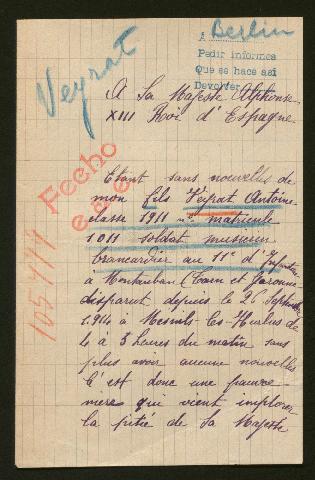 Veyrat
A Berlin
Pedir informes
Que se hace así
Devolver
A Sa Majesté Alphonse
XIII Roi d'Espagne
Fecho
105494
Etant sans nouvelles de
mon fils Veyrat Antoine
classe 1911 nº matricule
1011 soldat musicien
brancardier au 11e d'Infanterie
à Montauban (Tarn et Garonne
disparut depuis le 26 Septembre
1914 à Mesnils-les-Hurlus de
4 à 5 heures du matin sans
plus avoir aucune nouvelles
C'est donc une pauvre
mère qui vient implorer
la pitié de Sa Majesté